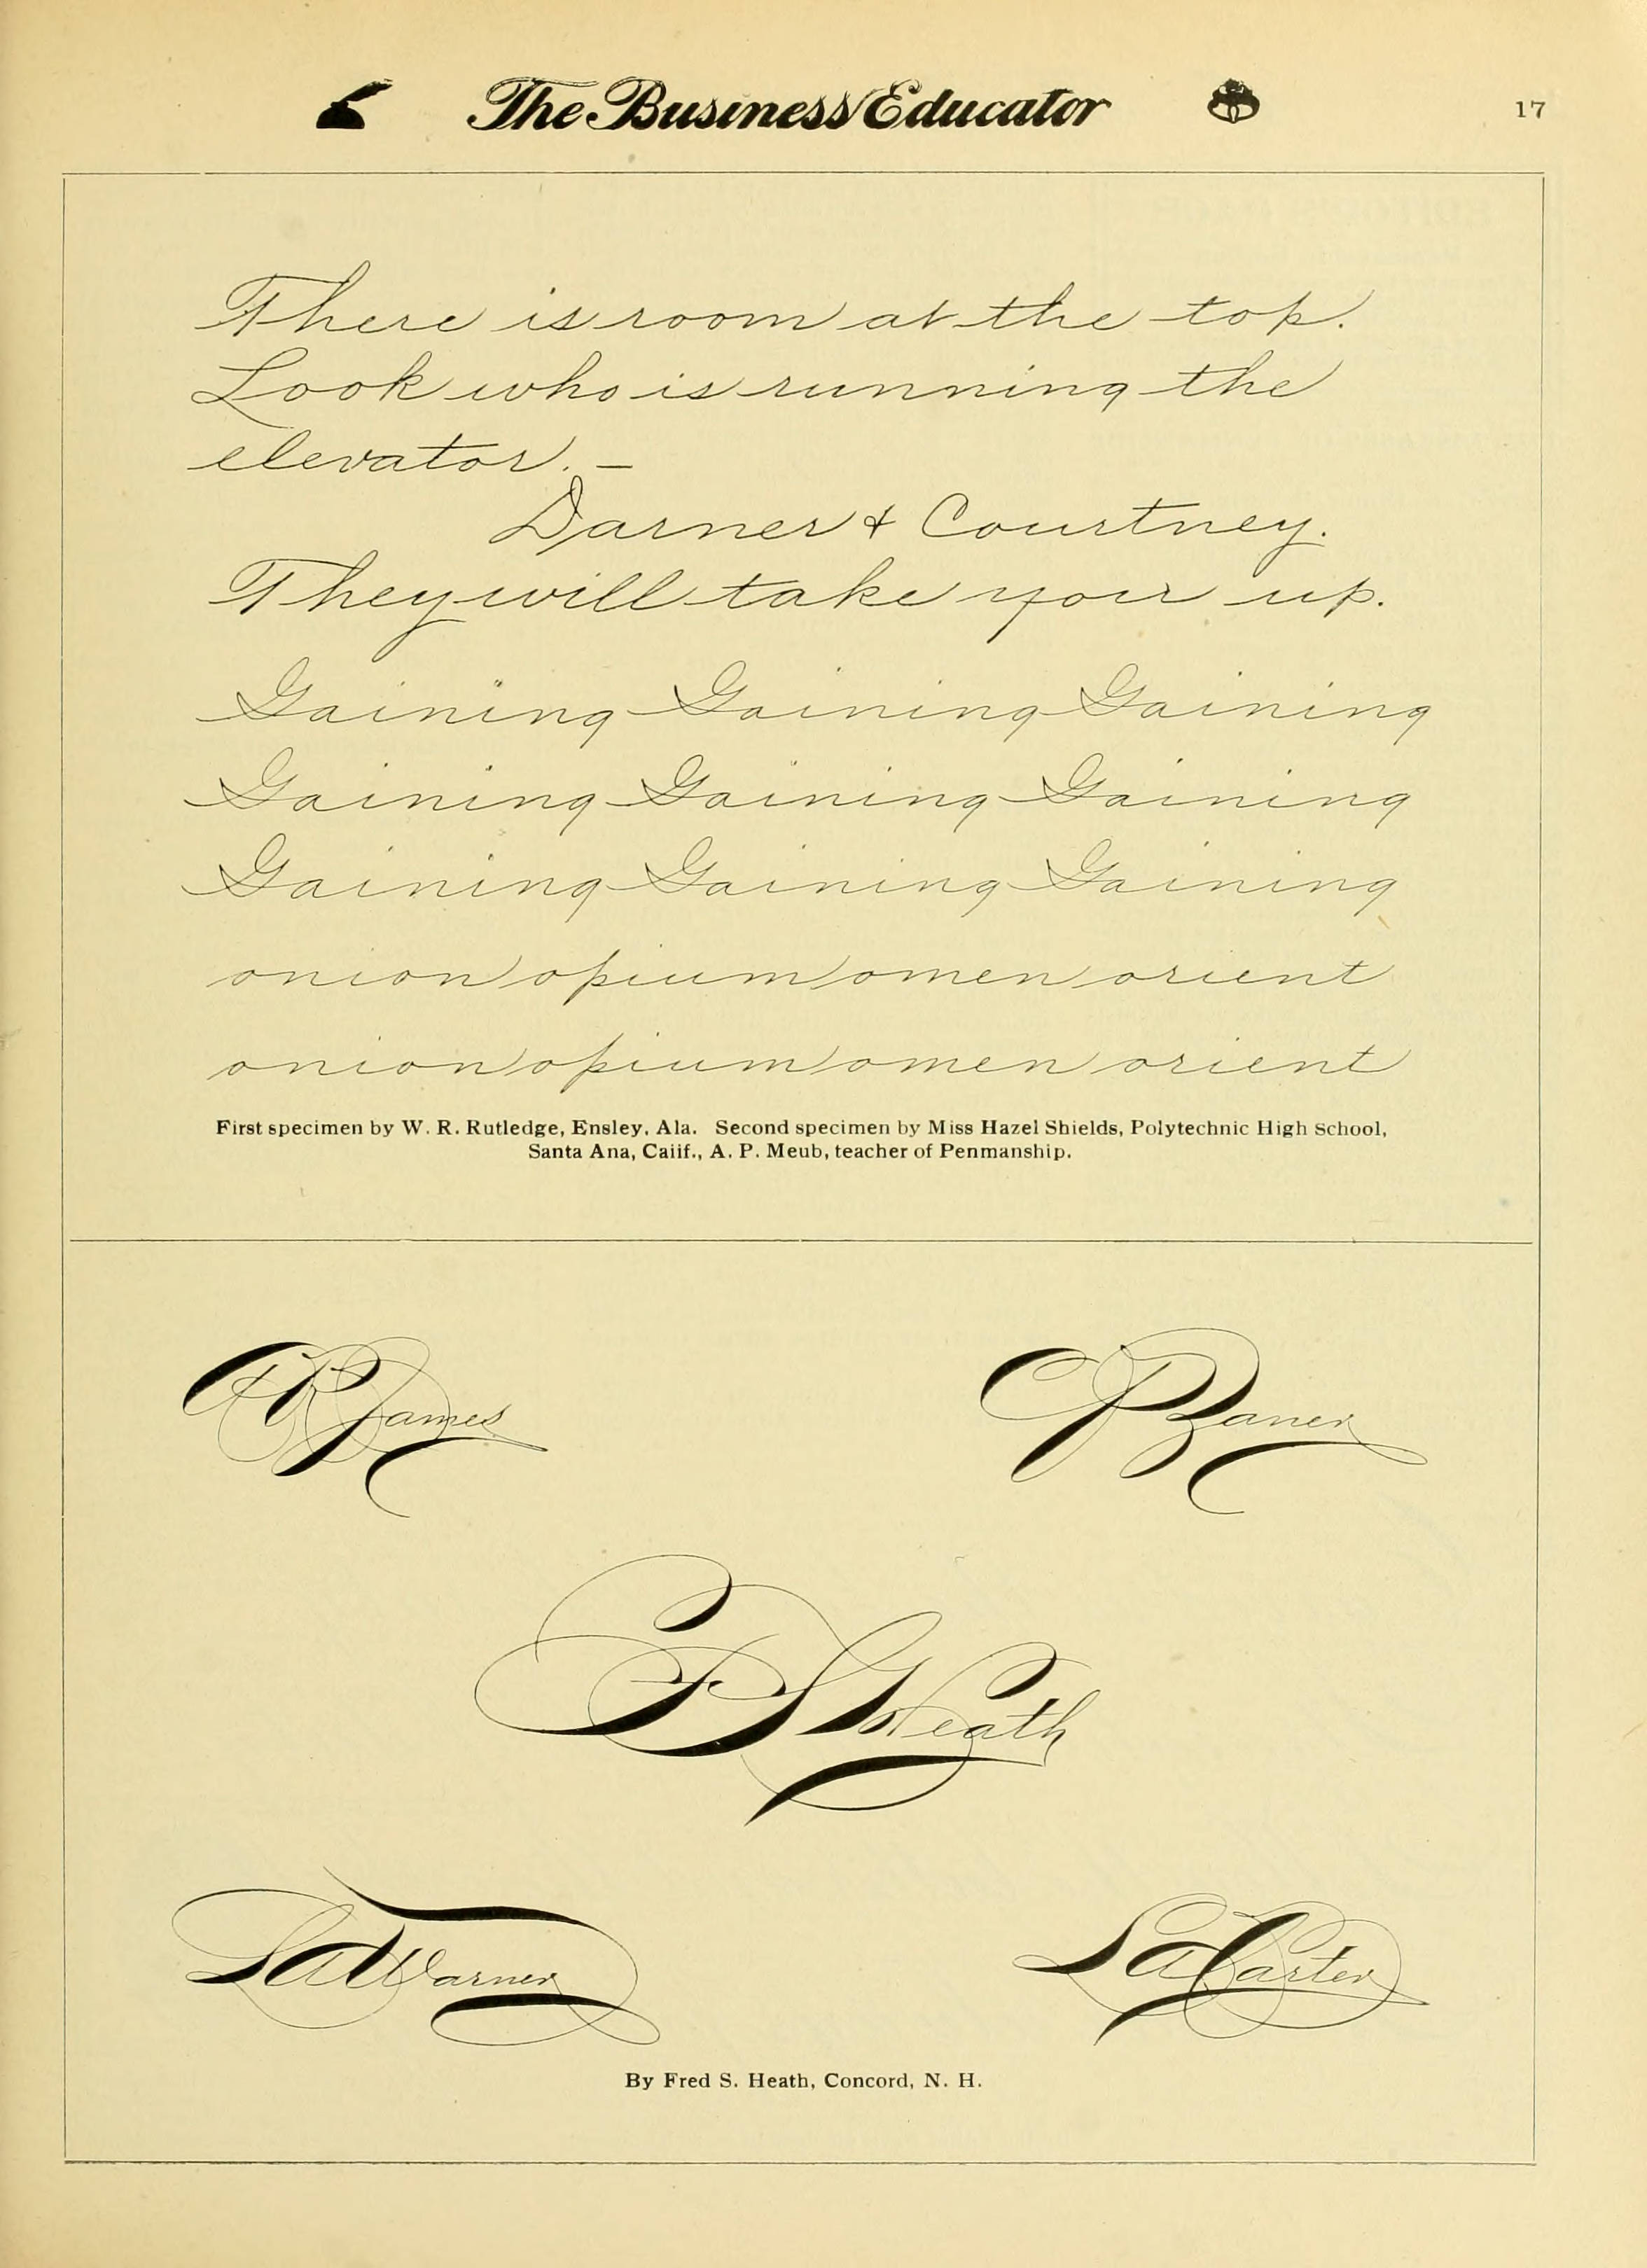 The Business Educator
17
There is room at the top.
Look who is running the
elevator. —
Darner & Courtney.
They will take you up.
Gaining Gaining Gaining
Gaining Gaining Gaining
Gaining Gaining Gaining
onion opium omen orient
onion opium omen orient
First specimen by W. R. Rutledge, Ensley, Ala. Second specimen by Miss Hazel Shields, Polytechnic High School,
Santa Ana, Caiif., A. P. Meub, teacher of Penmanship.
A R James
C P Zaner
F S Heath
L A Warner
S A Carter
By Fred S. Heath, Concord, N. H.